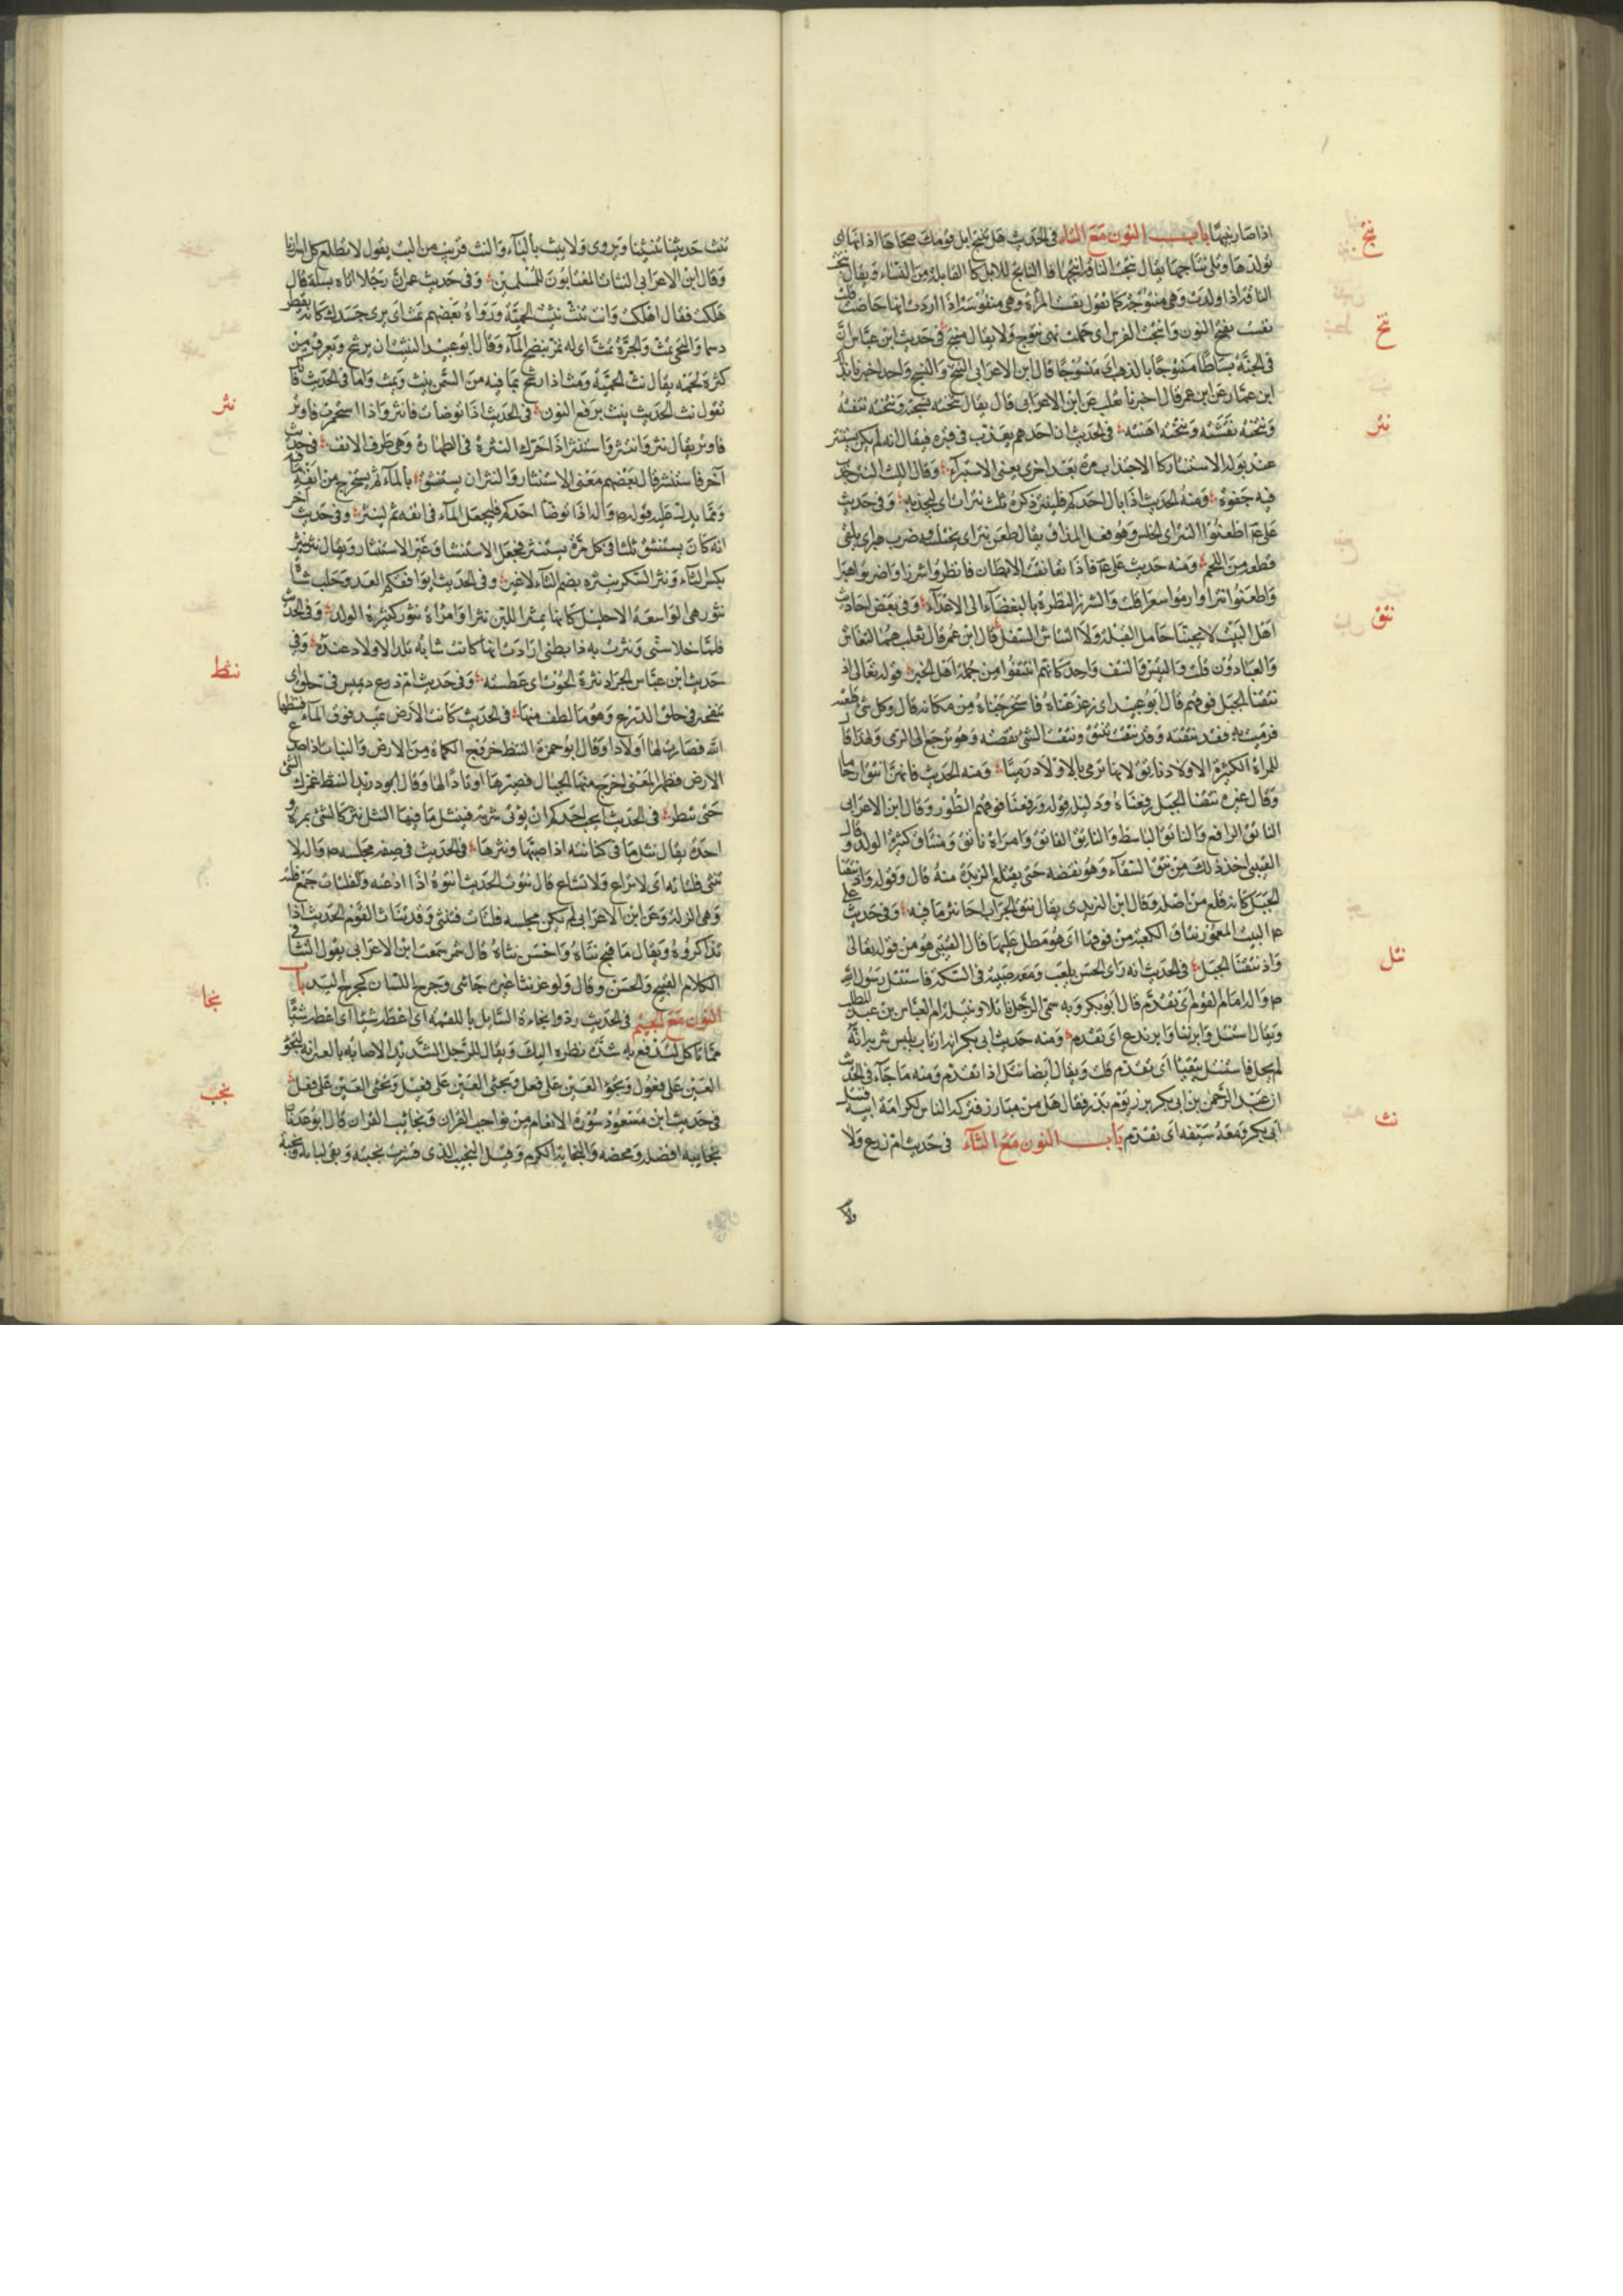 اذا صار نبيها باب النون مع التاء في الحديث هل تنتج ابل قومك صحاحا اذانها اى
تولدها وتلى نتاجها يقال نتجت الناقة انتجها فالناتج للابل كالقابلة من النساء ويقال نتجت
الناقة اذا ولدت وهى منتوجة كما تقول نفست المرأة وهى منفوسة اذا اردت انها حاضت قلت
نفست بفتح النون وانتجت الفرس اى حملت فهى نتوج ولا يقال منتج في حديث ابن عباس ان
في الجنة بساطا منتوخا بالذهب اى منسوجا قال ابن الاعرابى النتخ والنسج واحد اخبرنا بذلك
ابن عمار عن ابن عمر قال اخبرنا ثعلب عن ابن الاعرابى قال يقال نتخته نسجته ونتخته نتفته
ونتخته نقشته ونتخته اهنته في الحديث ان احدهم يعذب في قبره فيقال انه لم يكن يستنتر
عند بوله الاستنتار كالاجتذاب مرة بعد اخرى يعنى الاستبراء وقال الليث النتر جذب
فيه جفوة ومنه الحديث اذا بال احدكم فلينتر ذكره ثلث نترات اى ليجذبه وفي حديث
على اطعنوا النتر اى الخلس وهو فعل الحذاق يقال طعن نتر اى يختلس وضرب هبر اى يلقى
قطعة من اللحم ومنه حديث على
واطعنوا نترا وارموا سعرا قلت والشزر النظرة بالبغضاء الى الاعداء وفي بعض احاديث
اهل البيت لا يحبنا حامل القيلة ولا النتاش السفل قال ابن عمر قال ثعلب هم النغاش
والعيارون قلت والنتش والنتف واحد كانهم انتتفوا من جملة اهل الخير قوله تعالى اذ
نتقنا الجبل فوقهم قال ابو عبيد اى زعزعناه فاستخرجناه من مكانه قال وكل شئ قلعته
فرميت به فقد نتقته وقد نتقت تنتق ونتقت الشئ نقضته وهو يرجع الى الرمى ولهذا قال
للمراة الكثيرة الاولاد ناتق لانها ترمى بالاولاد رميا ومنه الحديث فانهن انتق ارحاما
وقال غيره نتقنا الجبل رفعناه ودليله قوله ورفعنا فوقهم الطور وقال ابن الاعرابى
الناتق الرافع والناتق الباسط والناتق الفاتق وامراة ناتق ومنتاق كثيرة الولد وقال
القتيبى اخذ ذلك من نتق السقاء وهو نفضه حتى يقتلع الزبدة منه قال وقوله واذ نتقنا
الجبل كانه قلع من اصله وقال ابن اليزيدى يقال نتق الجراب اذا نثر ما فيه وفي حديث على
البيت المعمور نتاق الكعبة من فوقها اى هو مطل عليها قال القتيبى هو من قوله تعالى
واذ نتقنا الجبل في الحديث انه راى الحسن يلعب ومعه صبية في السكة فاستنتل رسول الله
امام القوم اى تقدم قال ابو بكر وبه سمى الرجل ناتلا ونتيلة ام العباس بن عبد المطلب
ويقال استنتل وابرنتا وابرندع اى تقدم ومنه حديث ابى بكر
فاستنتل يتقيأ اى تقدم قلت ويقال ايضا نتل اذا تقدم ومنه ما جاء في الحديث
ان عبد الرحمن بن ابى بكر برز يوم بدر فقال هل من مبارز فتركه الناس لكرامة ابيه فنتل
ابى بكر ومعه سيفه اى تقدم باب النون مع الثاء في حديث ام زرع ولا
ولا
نتج
نتخ
نتر
نتق
نتل
نث
تنث حديثنا تنثيثا ويروى ولا يبث بالباء والنث قريب من البث يقول لا تطلع كل اسرارنا
وقال ابن الاعرابى النثاث المغتابون للمسلمين وفي حديث عمر ان رجلا اتاه يسئله قال
هلكت فقال اهلكت وانت تنث نثيث الحميت ورواه بعضهم تمث اى يرى جسدك كانه يقطر
دسما ونحى ينث والجرة تمث اى له نز ينضح الماء وقال ابو عبيد النثيث ان يرشح ويعرق من
كثرة لحمه يقال نث الحميت ومث اذا رشح بما فيه من السمن ينث ويمث واما في الحديث فانك
تقول نث الحديث ينث برفع النون في الحديث اذا توضات فانثر واذا استجمرت فاوتر
فاوتر يقال نثر وانتثر واستنثر اذا حرك النثرة في الطهارة وهى طرف الانف في حديث
آخر فاستنثر قال بعضهم معنى الاستنثار والنثر ان يستنشق بالماء ثم يستخرج من انفه
ومما يدل عليه قوله اذا توضا احدكم فليجعل الماء في انفه ثم لينثر وفي حديث آخر
انه كان يستنشق ثلثا في كل مرة يستنثر فجعل الاستنشاق غير الاستنثار ويقال نثر ينثر
بكسر الثاء ونثر السكر ينثره بضم الثاء لا غير وفي الحديث ايوافقكم العدو حلب شاة
نثور هى الواسعة الاحليل كانها تنثر اللبن نثرا وامراة نثور كثيرة الولد وفي الحديث
فلما خلا سنى ونثرت له ذا بطنى ارادت انها كانت شابة تلد الاولاد عنده وفي
حديث ابن عباس الجراد نثرة الحوت اى عطسته وفي حديث ام زرع ويميس في حلق اى
يتبختر في حلق الدرع وهو ما لطف منها في الحديث كانت الارض تميد فوق الماء فنثطها
الله فصارت لها اوتادا وقال ابو حمزة النثط خروج الكماة من الارض والنبات اذا صدع
الارض فظهر المعنى اخرج منها الجبال فصيرها اوتادا لها وقال ابو دريد النثط غمزك الشئ
حتى يثبط في الحديث ايحب احدكم ان يؤتى مشربته فينتثل ما فيها النثل نثرك الشئ بمرة
واحدة يقال نثل ما في كنانته اذا صبها ونثرها في الحديث في صفة مجلسه لا
تنثى فلتاته اى لا تذاع ولا تشاع قال نثوت الحديث انثوه اذا اذعته والفلتات جمع فلتة
وهى الزلة وعن ابن الاعرابى لم يكن مجلسه فلتات فتنثى وقد تناثا القوم الحديث اذا
تذاكروه ويقال ما اقبح نثاه واحسن نثاه قال شمر سمعت ابن الاعرابى يقول النثا في
الكلام القبيح والحسن وقال ولو عن نثا غيره جاءنى وجرح اللسان كجرح اليد باب
النون مع الجيم في الحديث ردوا نجاءة السائل باللقمة اى اعطه شيئا
مما تاكل لتدفع به شدة نظره اليك ويقال للرجل الشديد الاصابة بالعين انه لنجوء
العين على فعول ونجؤ العين على فعل ونجئ العين على فعيل ونجئ العين على فعل
في حديث ابن مسعود سورة الانعام من نواجب القران ونجائب القران قال ابو عدنان
نجائبه افضله ومحضه والنجابة الكرم وقيل النجيب الذى قشرت نجبته وبقى لبابه ونجبة
نثر
نثط
نجا
نجب